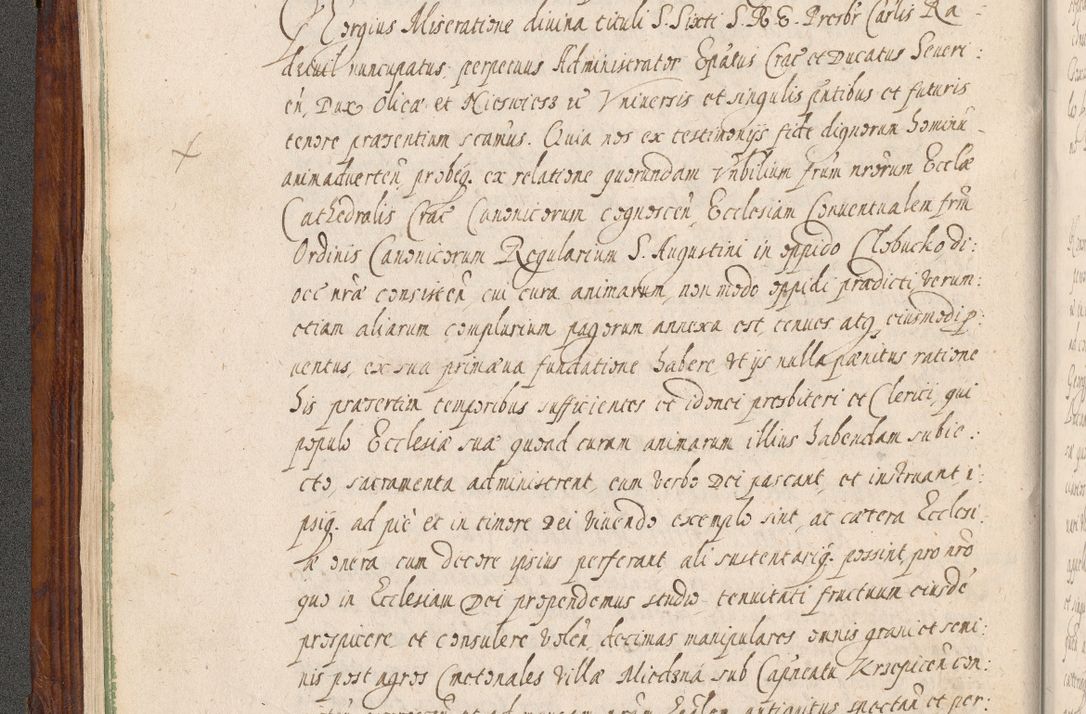 Georgius Miseratione divina tituli S. Sixti S. R. E. Presbr Carlis Ra-
divil nuncupatus, perpetuus Administrator Epatus Crac et Ducatus Severi:
eñ, Dux Olicæ et Nieswiess etc Vniversis et singulis pñtibus et futuris
tenore præsentium scimus. Quia nos ex testimonijs fide dignorum hominũ
animadverteñ, probeq. ex relatione quorundam Vnbilium frũm nrõrum Ecclæ
Cathedralis Crac Canonicorum cognosceñ, Ecclesiam Conventualem frm̃
Ordinis Canonicorum Regularium S. Augustini in oppido Clobucko di:
oec nræ consisteñ cui cura animarum, non modo oppidi prædicti, verum:
etiam aliarum complurium pagorum annexa est, tenues atq. eiusmodi p:
ventus, ex sua primæva fundatione habere, vt ijs nulla pænitus ratione
his præsertim temporibus sufficientes et idonei presbiteri et Clerici, qui
populo Ecclesiæ suæ quoad curam animarum illius habendam subie:
cto, sacramenta administrent, eum verbo Dei pascant, et instruant, i:
psiq. ad piè et in timore Dei vivendo exemplo sint, ac cætera Ecclesi
æ onera cum decore ipsius perferant ali sustentariq. possint, pro nrõ
quo in Ecclesiam Dei propendemus studio tenuitati fructuum eiusdẽ
prospicere et consulere voleñ, decimas manipulares omnis grani et semi:
nis post agros Cmetonales Villæ Miedzna sub Capneatu Krzepiceñ con:
antiquitus spectañ et per: